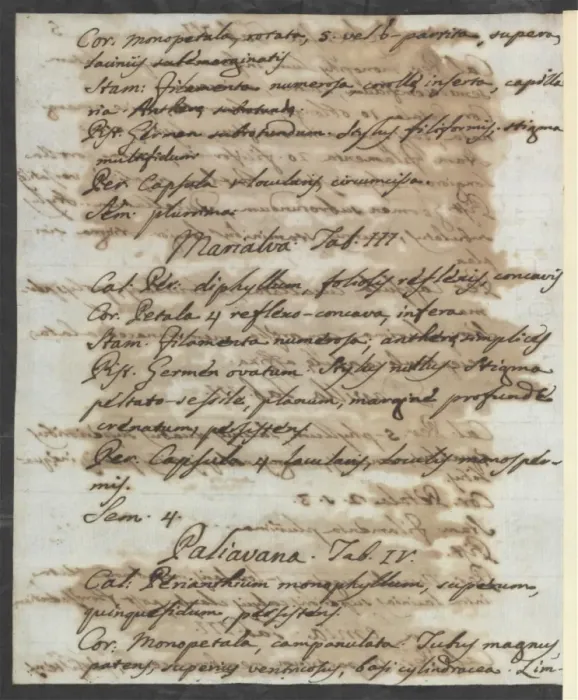 Cor. Monopetala, rotata, 5. vel 6-partita, supera,
laciniis
Stam: Filamenta numerosa corollę inserta, capilla
ria. Antherę subrotundę.
Pist. Germen subrotundum. Stylus filiformis. Stigma
multifidum
Per. Capsula 1-locularis, circumcisa.
Sem. plurima.
Marialva. Tab. III.
Cal. Per. diphyllum, foliolis reflexis, concavis
Cor. Petala 4 reflexo-concava, infera
Stam. Filamenta numerosa, antherę simplices
Pist. Germen ovatum. Stylus nullus. Stigma
peltato-sessile, planum, margine profunde
crenatum, persistens
Per. Capsula 4-locularis, loculis monosper-
mis.
Sem. 4.
Paliavana. Tab. IV.
Cal. Perianthium monophyllum, superum,
quinquefidum persistens
Cor. Monopetala, campanulata. Tubus magnus,
patens, superius ventricosus, basi cylindracea. Lim-